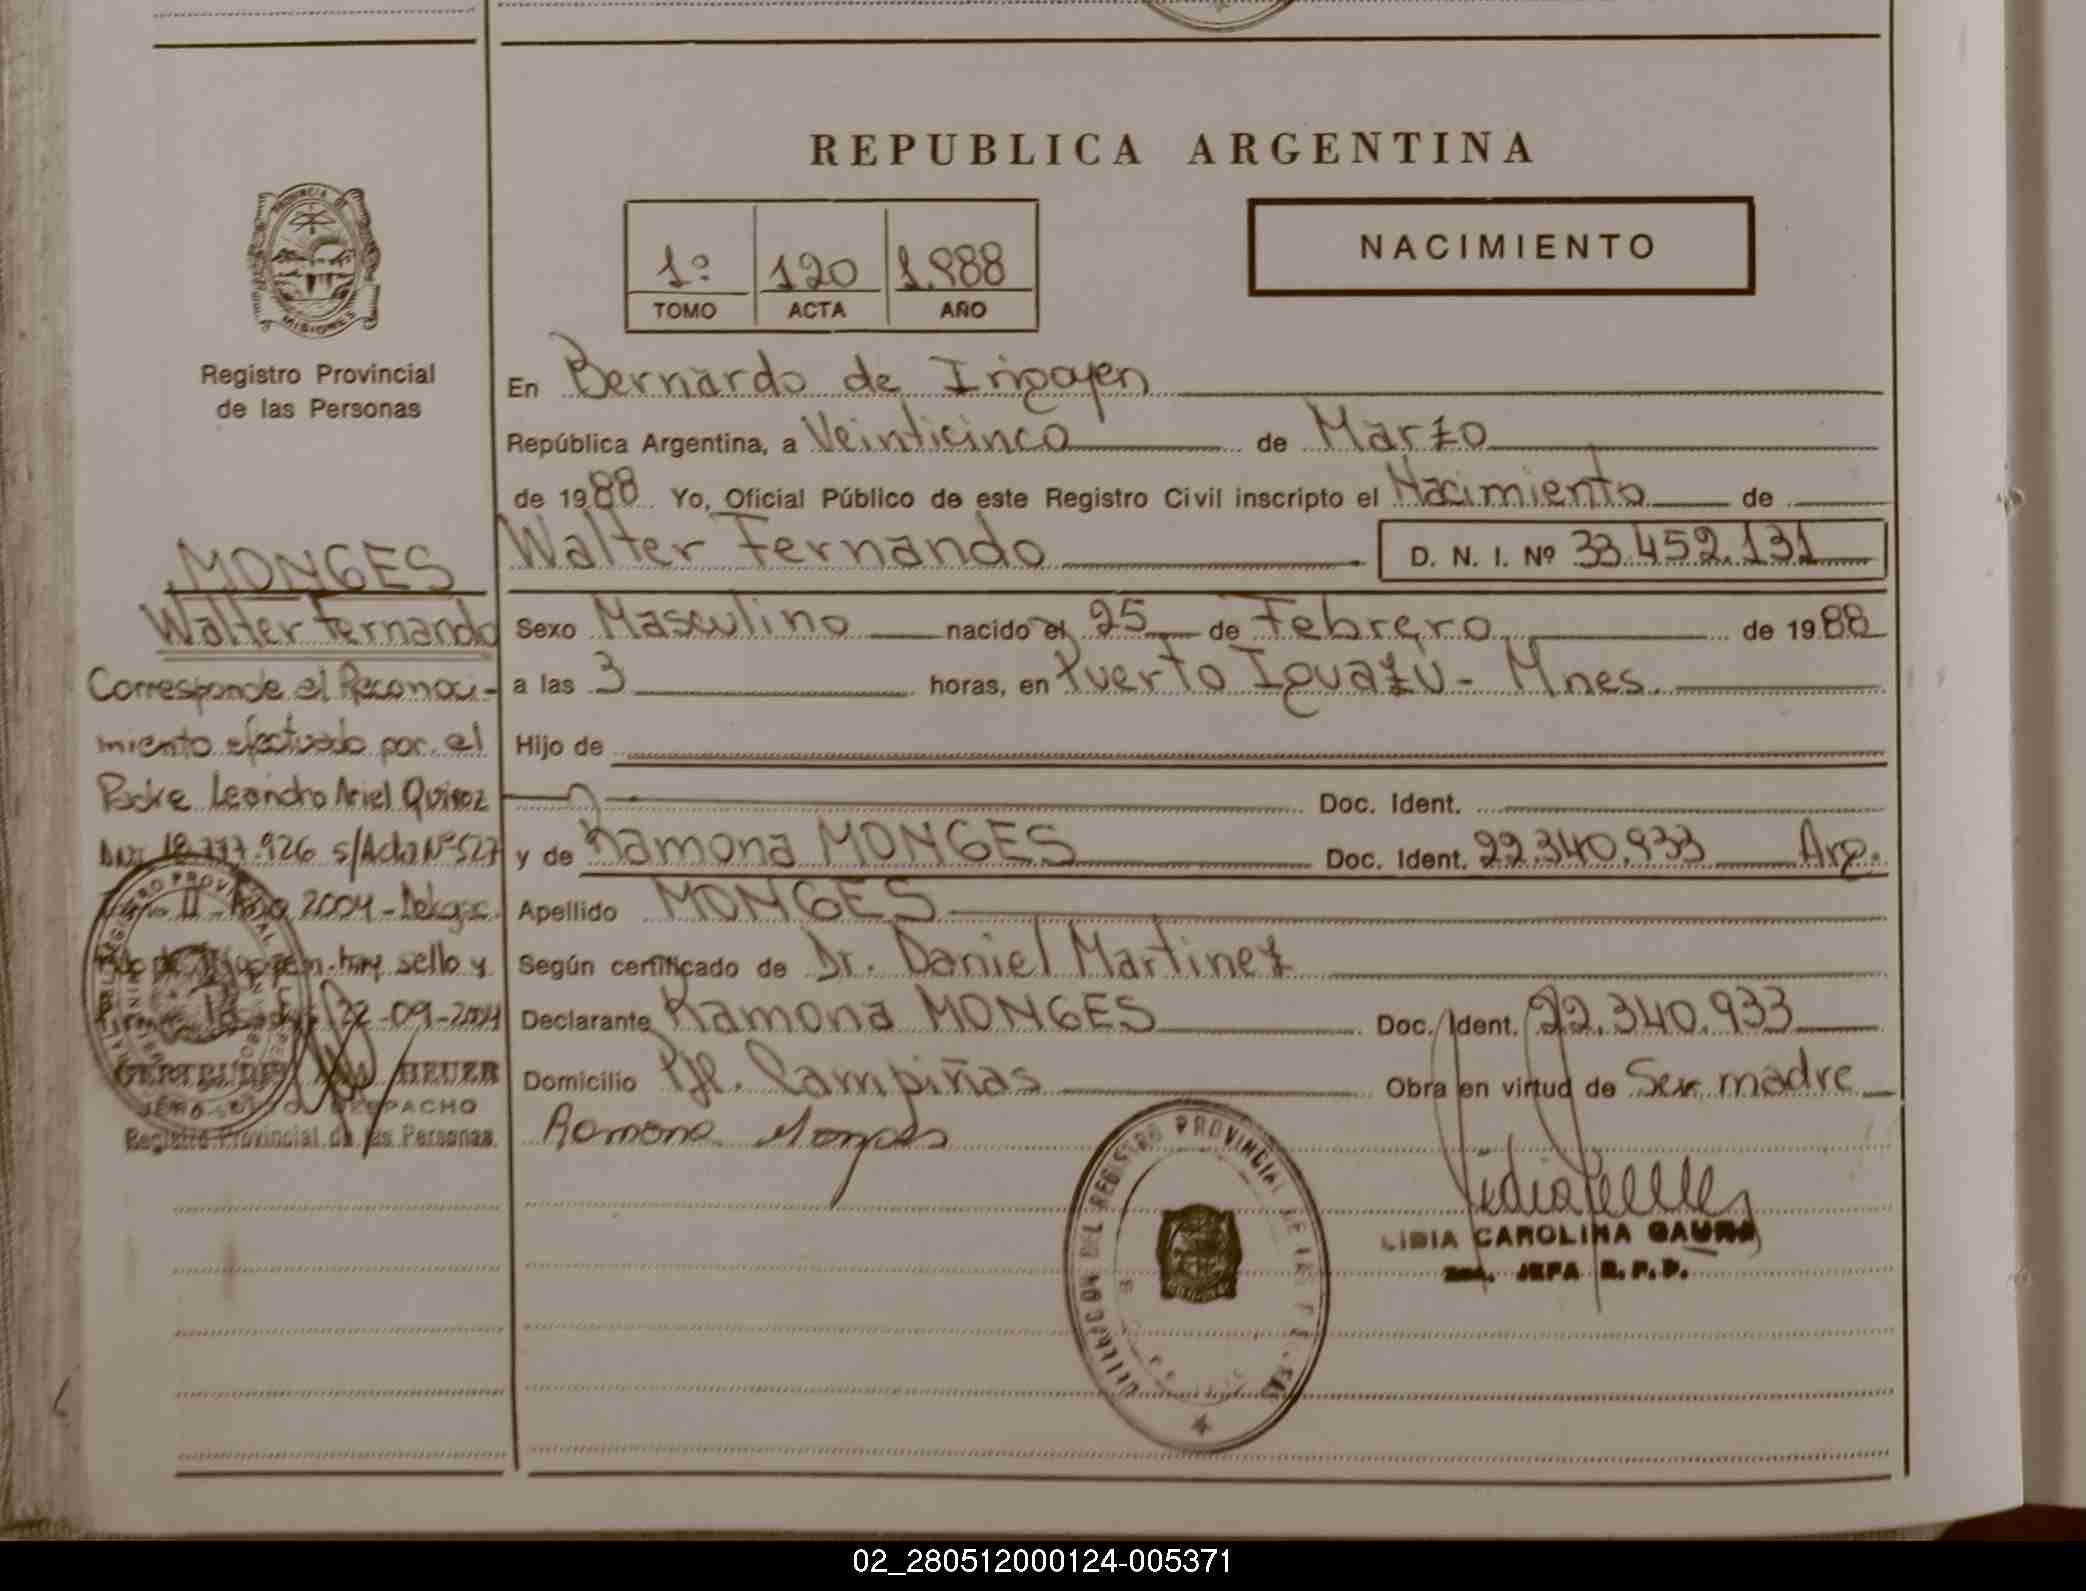 REPUBLICA ARGENTINA
PROVINCIA DE
MISIONES
Registro Provincial
de las Personas
1º 120 1.988
TOMO ACTA AÑO
NACIMIENTO
En Bernardo de Irigoyen
República Argentina, a Veinticinco de Marzo
de 1988 Yo, Oficial Público de este Registro Civil inscripto el Nacimiento de
Walter Fernando D. N. I. Nº 33.452.131
Sexo Masculino nacido el 25 de Febrero de 1988
a las 3 horas, en Puerto Iguazú - Mnes.
Hijo de
Doc. Ident.
y de Ramona MONGES Doc. Ident. 22.340.933 Arg.
Apellido MONGES
Según certificado de Dr. Daniel Martinez
Declarante Ramona MONGES Doc. Ident. 22.340.933
Domicilio Pje. Campiñas Obra en virtud de Ser madre
Ramona Monges
LIDIA CAROLINA
JEFA R. P. P.
DEL REGISTRO PROVINCIAL DE
MONGES
Walter Fernando
Corresponde el Reconoci-
miento efectuado por el
Padre Leandro Ariel Quiroz
DNI 18.777.926 s/Acta Nº 527
II - Año 2004 - Delegac.
hay sello y
22-09-2004
GERTRUDE HEUER
DESPACHO
Registro Provincial de las Personas
02_280512000124-005371